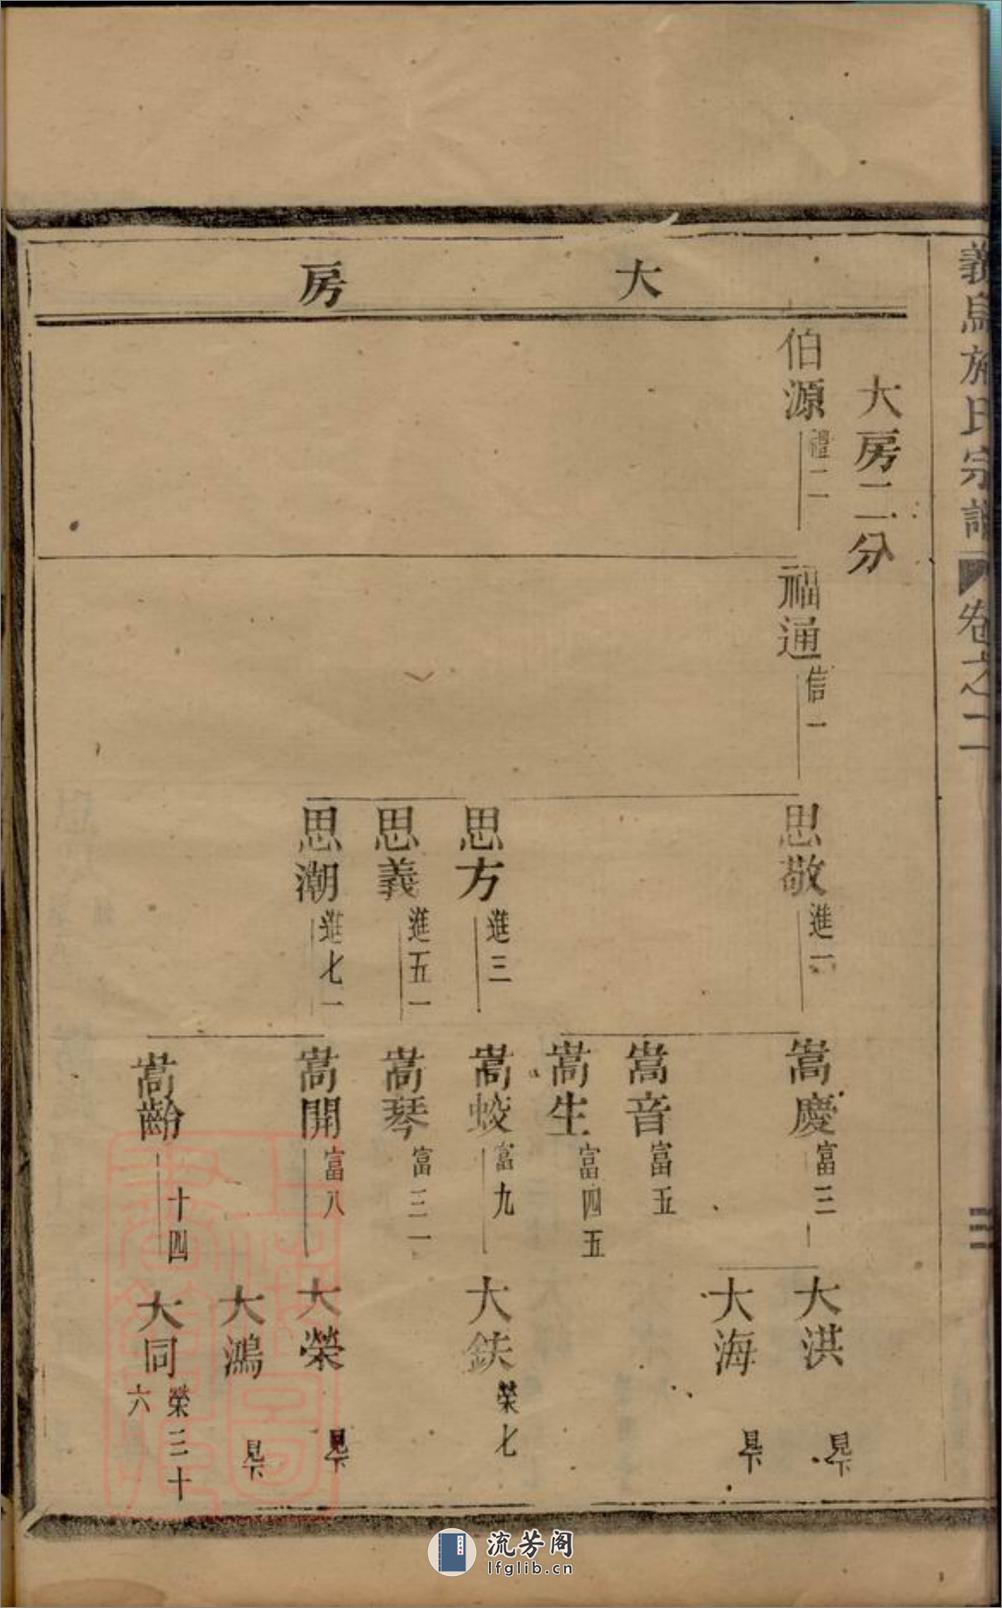 義烏施氏宗譜 卷之二
三
大房
大房二分
伯源 禮二
福通 信一
思敬 進一
思方 進三
思義 進五一
思潮 進七一
嵩慶 富三
嵩音 富五
嵩生 富四五
嵩蛟 富九
嵩琴 富三一
嵩開 富八
嵩齡 十四
大洪 見下
大海 見下
大鈇 榮七
大榮 見下
大鴻 見下
大同 榮三十六
流芳阁
lfglib.cn